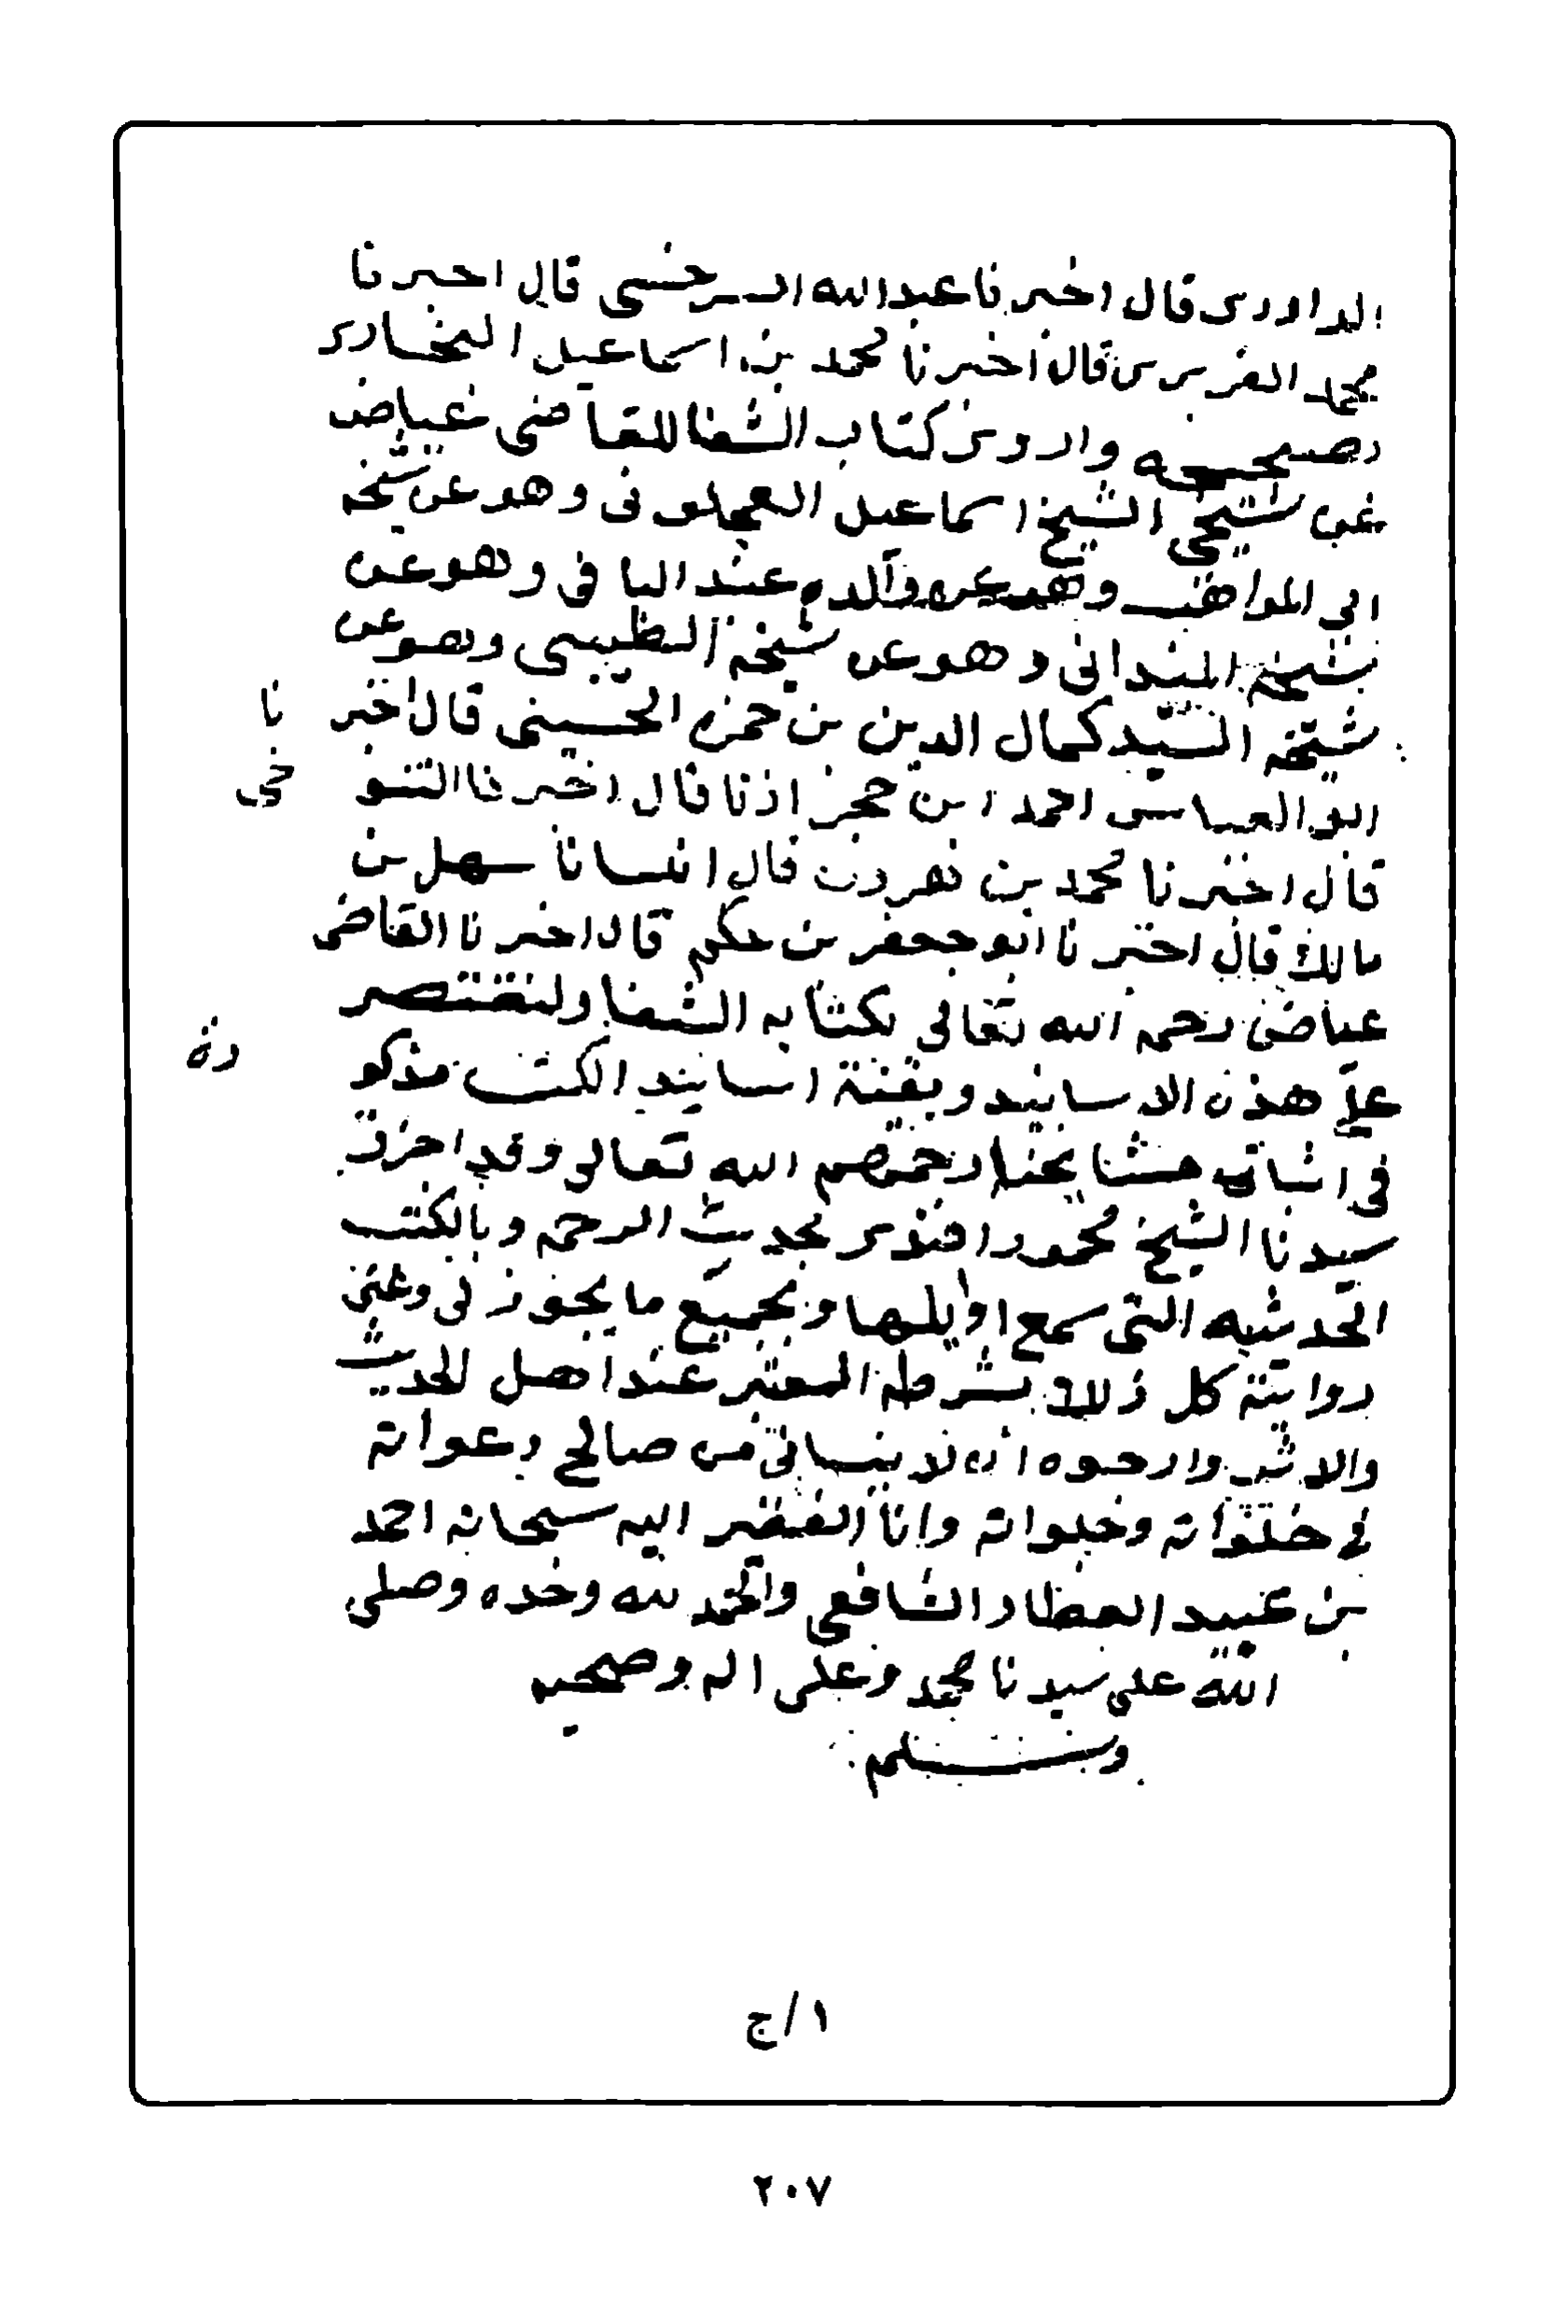 الداودى قال اخبرنا عبدالله السرخسى قال اخبرنا
محمد الفربرى قال اخبرنا محمد بن اسماعيل البخارى
بصحيحه واروى كتاب الشفا للقاضى عياض
عن شيخى الشيخ اسماعيل العجلونى وهو عن شيخه
ابى المواهب وهو عن والده عبد الباقى وهو عن
شيخه الميدانى وهو عن شيخه الطيبى وهو عن
شيخه السيد كمال الدين بن حمزه الحسينى قال اخبرنا
ابو العباس احمد ابن حجر اذنا قال اخبرنا التنوخى
قال اخبرنا محمد بن قال انبسانا سهل بن
مالك قال اخبرنا ابو جعفر بن حكم قال اخبرنا القاضى
عياض رحمه الله تعالى بكتابه الشفا ولنقتصر
على هذه الاسانيد وبقية اسانيد الكتب مذكورة
فى اثبات مشايخنا رحمهم الله تعالى وقد اجزت
سيدنا الشيخ محمود افندى بحديث الرحمه وبالكتب
الحديثيه التى سمع اوايلها وبجميع ما يجوز لى وعنى
روايته كل ذلك بشرطه المعتبر عند اهل الحديث
والاثر وارجوه ان لا ينسانى من صالح دعواته
فى خلواته وجلواته وانا الفقير اليه سبحانه احمد
بن عبيد العطار الشافعى والحمد لله وحده وصلى
الله على سيدنا محمد وعلى اله وصحبه
وسلم
١/ج
٢٠٧